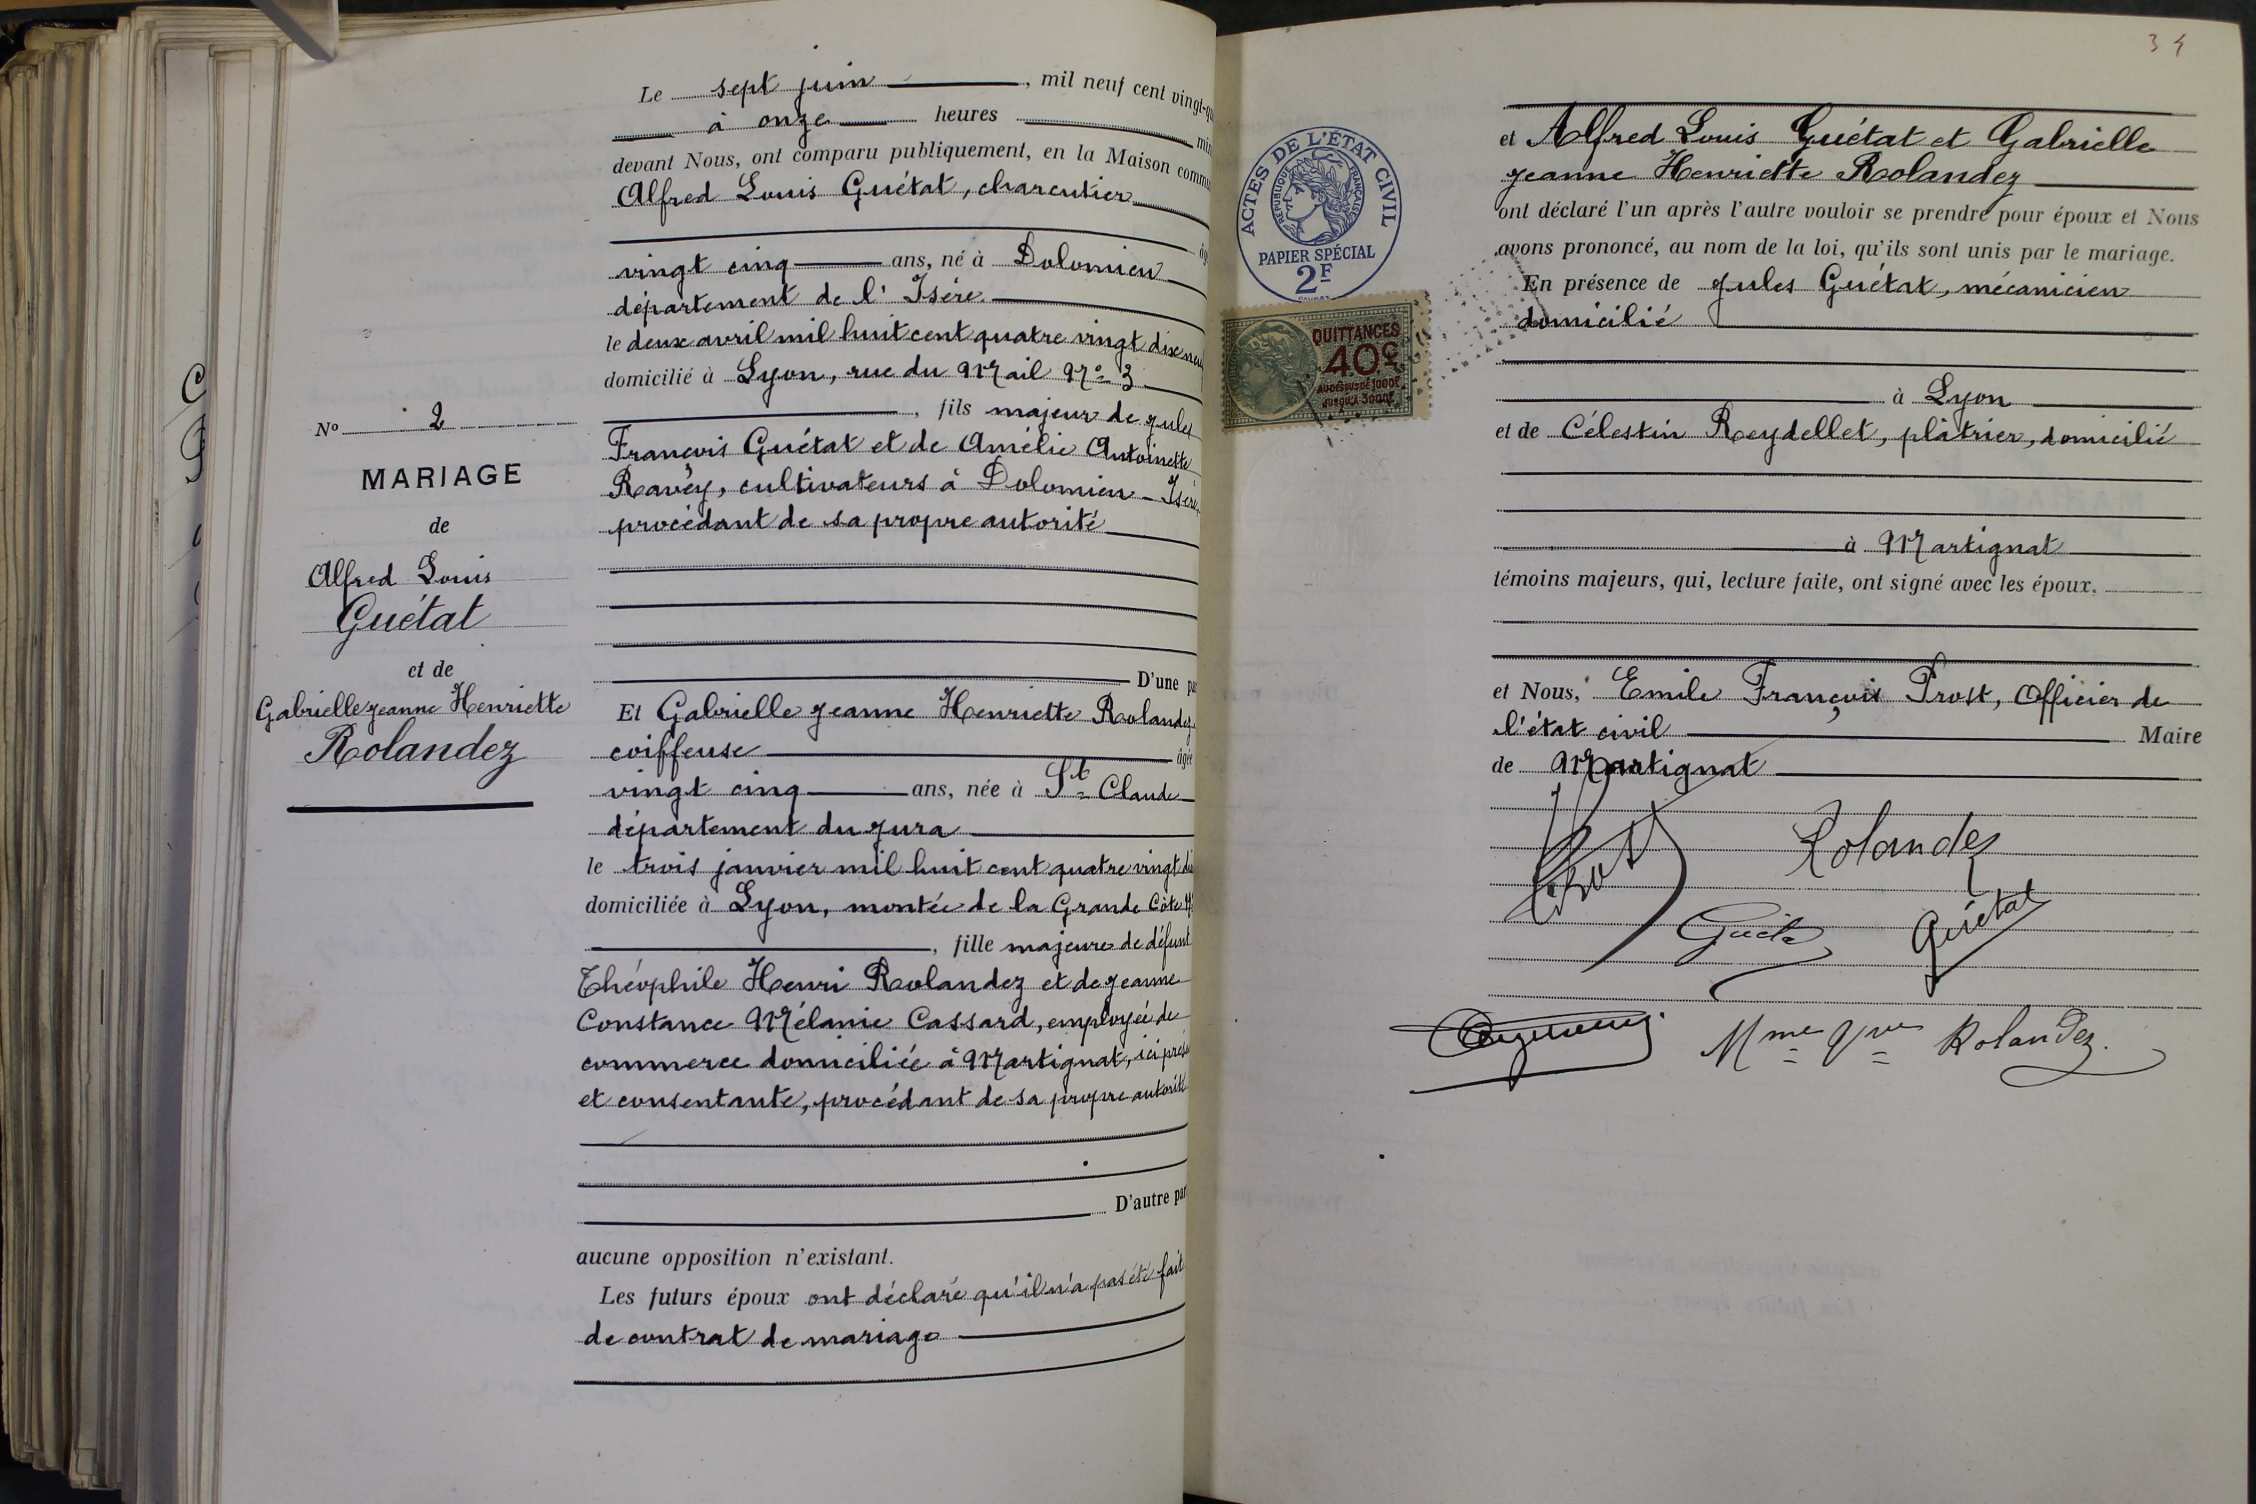 Le sept juin, mil neuf cent vingt-qu
à onze heures min
devant Nous, ont comparu publiquement, en la Maison commu
Alfred Louis Guétat, charcutier
âg
vingt cinq ans, né à Dolomieu
département de l'Isère
le deux avril mil huit cent quatre vingt dix neu
domicilié à Lyon, rue du Mail No 3
, fils majeur de Jules
François Guétat et de Amélie Antoinette
Ravey, cultivateurs à Dolomieu - Isère
procédant de sa propre autorité
D'une pa
No 2
MARIAGE
de
Alfred Louis
Guétat
et de
Gabrielle Jeanne Henriette
Rolandez
Et Gabrielle Jeanne Henriette Rolandez
coiffeuse âgée
vingt cinq ans, née à St Claude
département du Jura
le trois janvier mil huit cent quatre vingt di
domiciliée à Lyon, montée de la Grande Côte
, fille majeure de défunt
Théophile Henri Rolandez et de Jeanne
Constance Mélanie Cassard, employée de
commerce domiciliée à Martignat, ici prés
et consentante, procédant de sa propre autorité
D'autre par
aucune opposition n'existant.
Les futurs époux ont déclaré qu'il n'a pas été fait
de contrat de mariage
34
ACTES DE L'ÉTAT CIVIL
RÉPUBLIQUE FRANÇAISE
PAPIER SPÉCIAL
2F
QUITTANCES
40c
AU-DESSUS DE 1000F
JUSQU'À 3000F
et Alfred Louis Guétat et Gabrielle
Jeanne Henriette Rolandez
ont déclaré l'un après l'autre vouloir se prendre pour époux et Nous
avons prononcé, au nom de la loi, qu'ils sont unis par le mariage.
En présence de Jules Guétat, mécanicien
domicilié
à Lyon
et de Célestin Reydellet, plâtrier, domicilié
à Martignat
témoins majeurs, qui, lecture faite, ont signé avec les époux.
et Nous, Emile François Prost, Officier de
l'état civil Maire
de Martignat
Prost
Rolandez
Guétat
Mme Vve Rolandez.